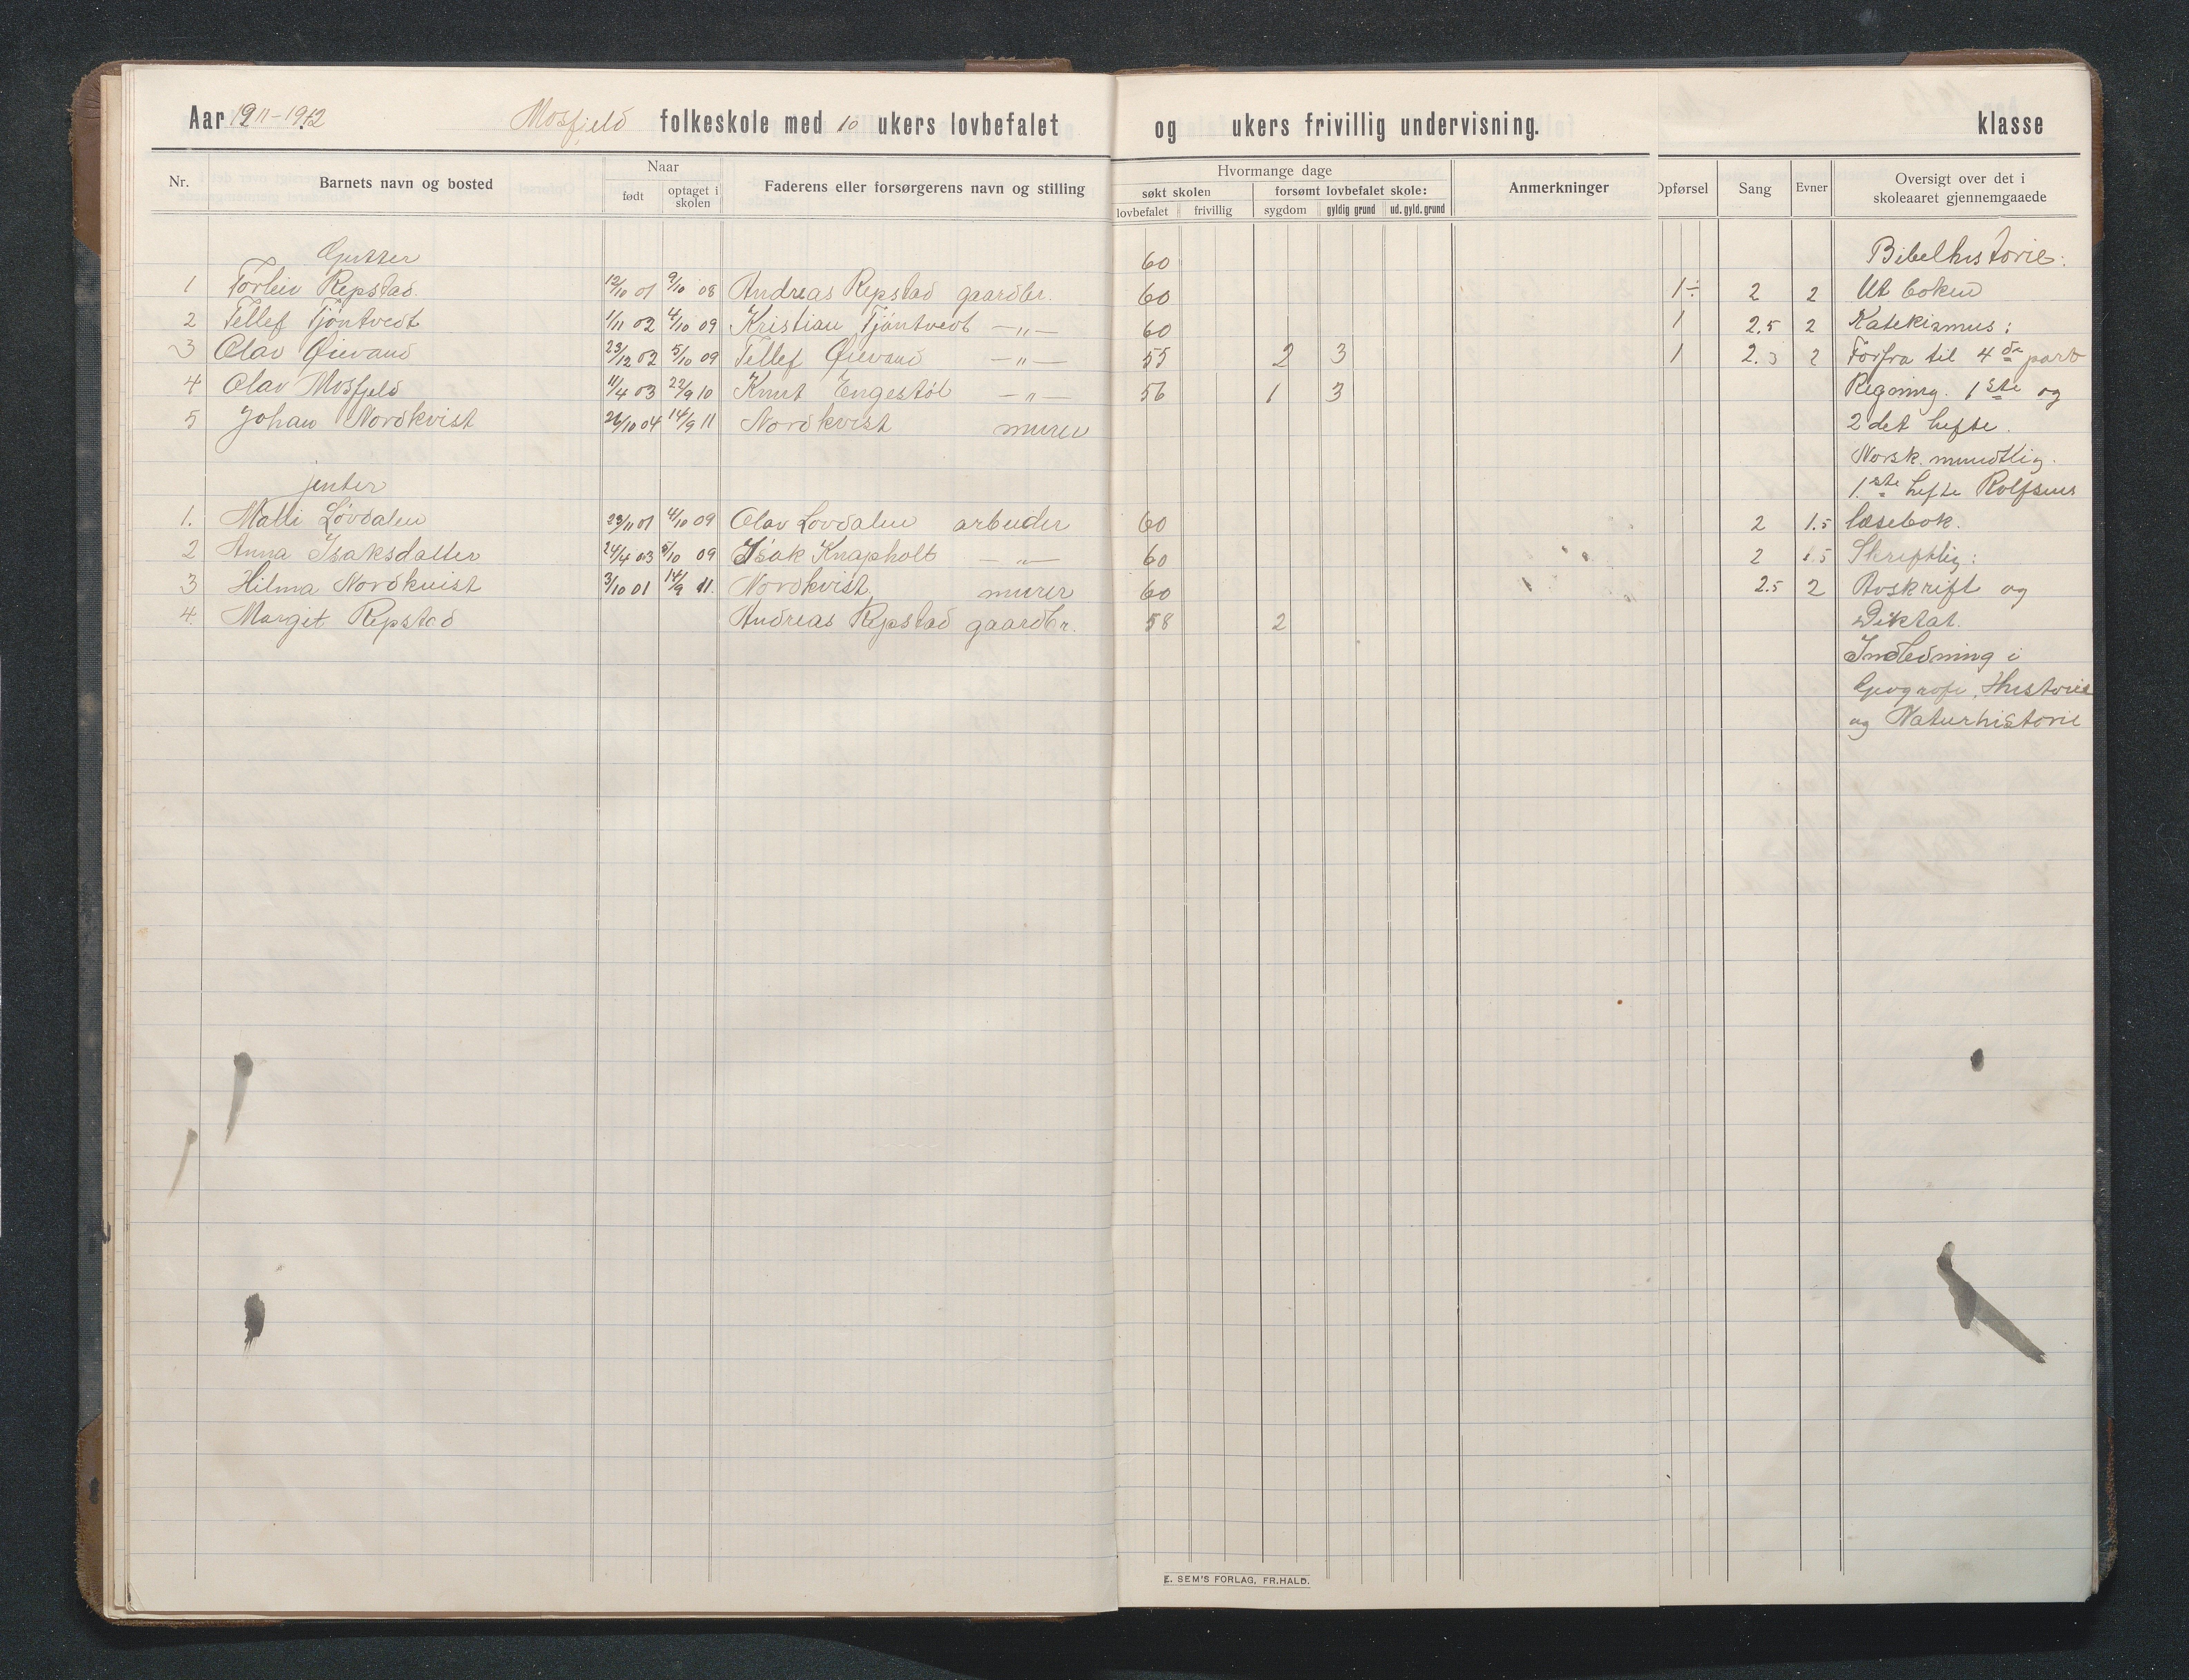 Aar 1911-1912 Mosfjeld folkeskole med 10 ukers lovbefalet og ukers frivillig undervisning. klasse
Nr. Barnets navn og bosted Naar Faderens eller forsørgerens navn og stilling Hvormange dage Anmerkninger Opførsel Sang Evner Oversigt over det i skoleaaret gjennemgaaede
født optaget i skolen søkt skolen forsømt lovbefalet skole:
lovbefalet frivillig sygdom gyldig grund ud. gyld. grund
Gutter 60 Bibelhistorie:
1 Torleiv Repstad. 12/10 01 9/10 08 Andreas Repstad gaardbr. 60 1÷ 2 2 Ut boken
2 Tellef Tjöntvedt 1/11 02 4/10 09 Kristian Tjöntvedt —„— 60 1 2.5 2 Katekismus:
3 Olav Øievand 23/12 02 5/10 09 Tellef Øievand —„— 55 2 3 1 2.3 2 Forfra til 4de part
4 Olav Mosfjeld 11/4 03 22/9 10 Knut Engestøl —„— 56 1 3 Regning. 1ste og
5 Johan Nordkvist 26/10 04 14/9 11 Nordkvist murer 2det hefte.
Norsk. mundtlig.
jenter 1.ste hefte Rolfsens
1. Malli Løvdalen 23/11 01 4/10 09 Olav Lovdalen arbeider 60 2 1.5 læsebok.
2 Anna Isaksdatter 24/4 03 5/10 09 Isak Knapholt —„— 60 2 1.5 Skriftlig:
3 Hilma Nordkvist 3/10 01 14/9 11. Nordkvist, murer 60 2.5 2 Avskrift og
4. Margit Repstad Andreas Repstad gaardbr. 58 2 Diktat.
Indledning i
Geografi, Historie
og Naturhistorie
E. SEM'S FORLAG, FR.HALD.